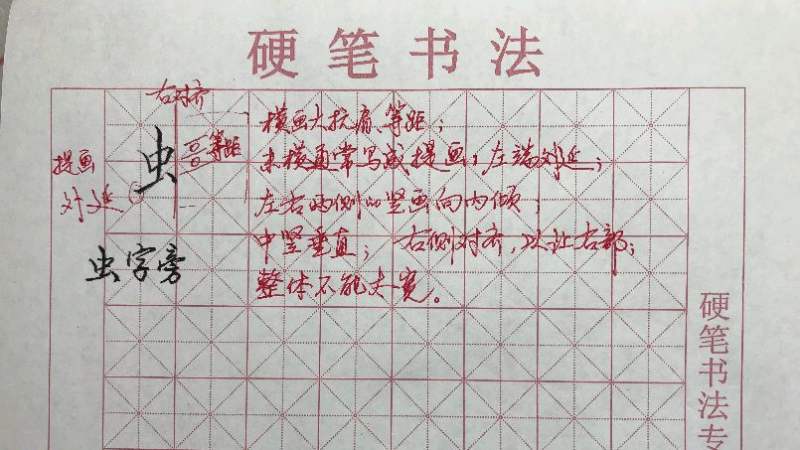 硬笔书法
右对齐
横画大抗肩、等距;
提画
虫
等距
末横通常写成提画,左端对延;
对延
左右两侧的竖画向内倾;
中竖垂直; 右侧对齐,以让右部;
虫字旁
整体不能太宽。
硬笔书法专